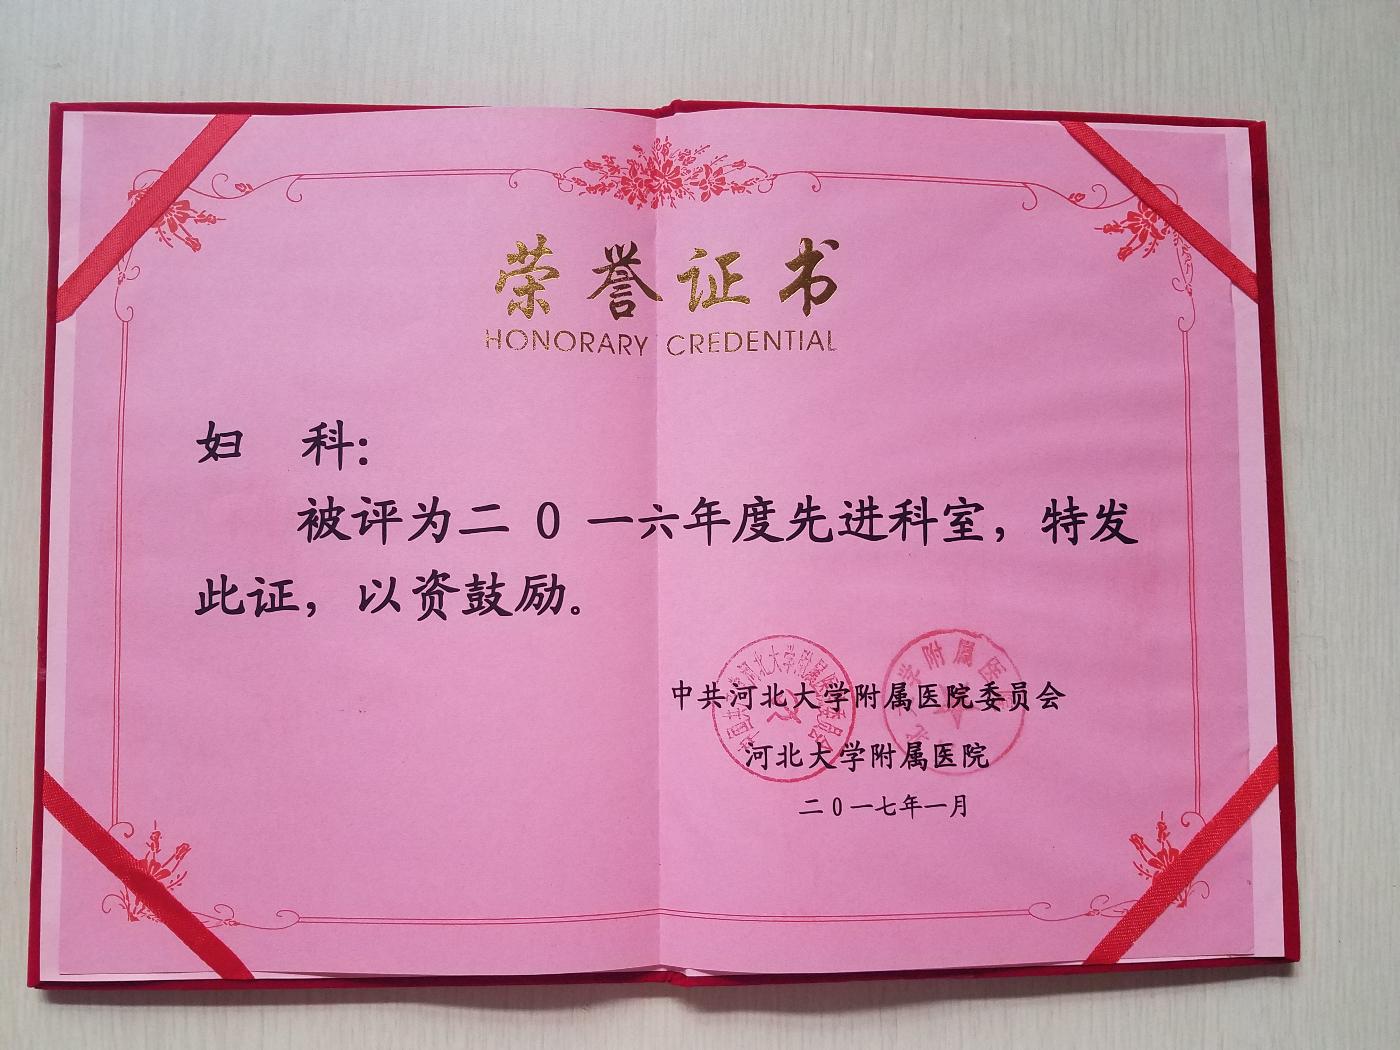 荣誉证书
HONORARY CREDENTIAL
妇 科：
被评为二0一六年度先进科室，特发
此证，以资鼓励。
中共河北大学附属医院委员会
河北大学附属医院
二0一七年一月